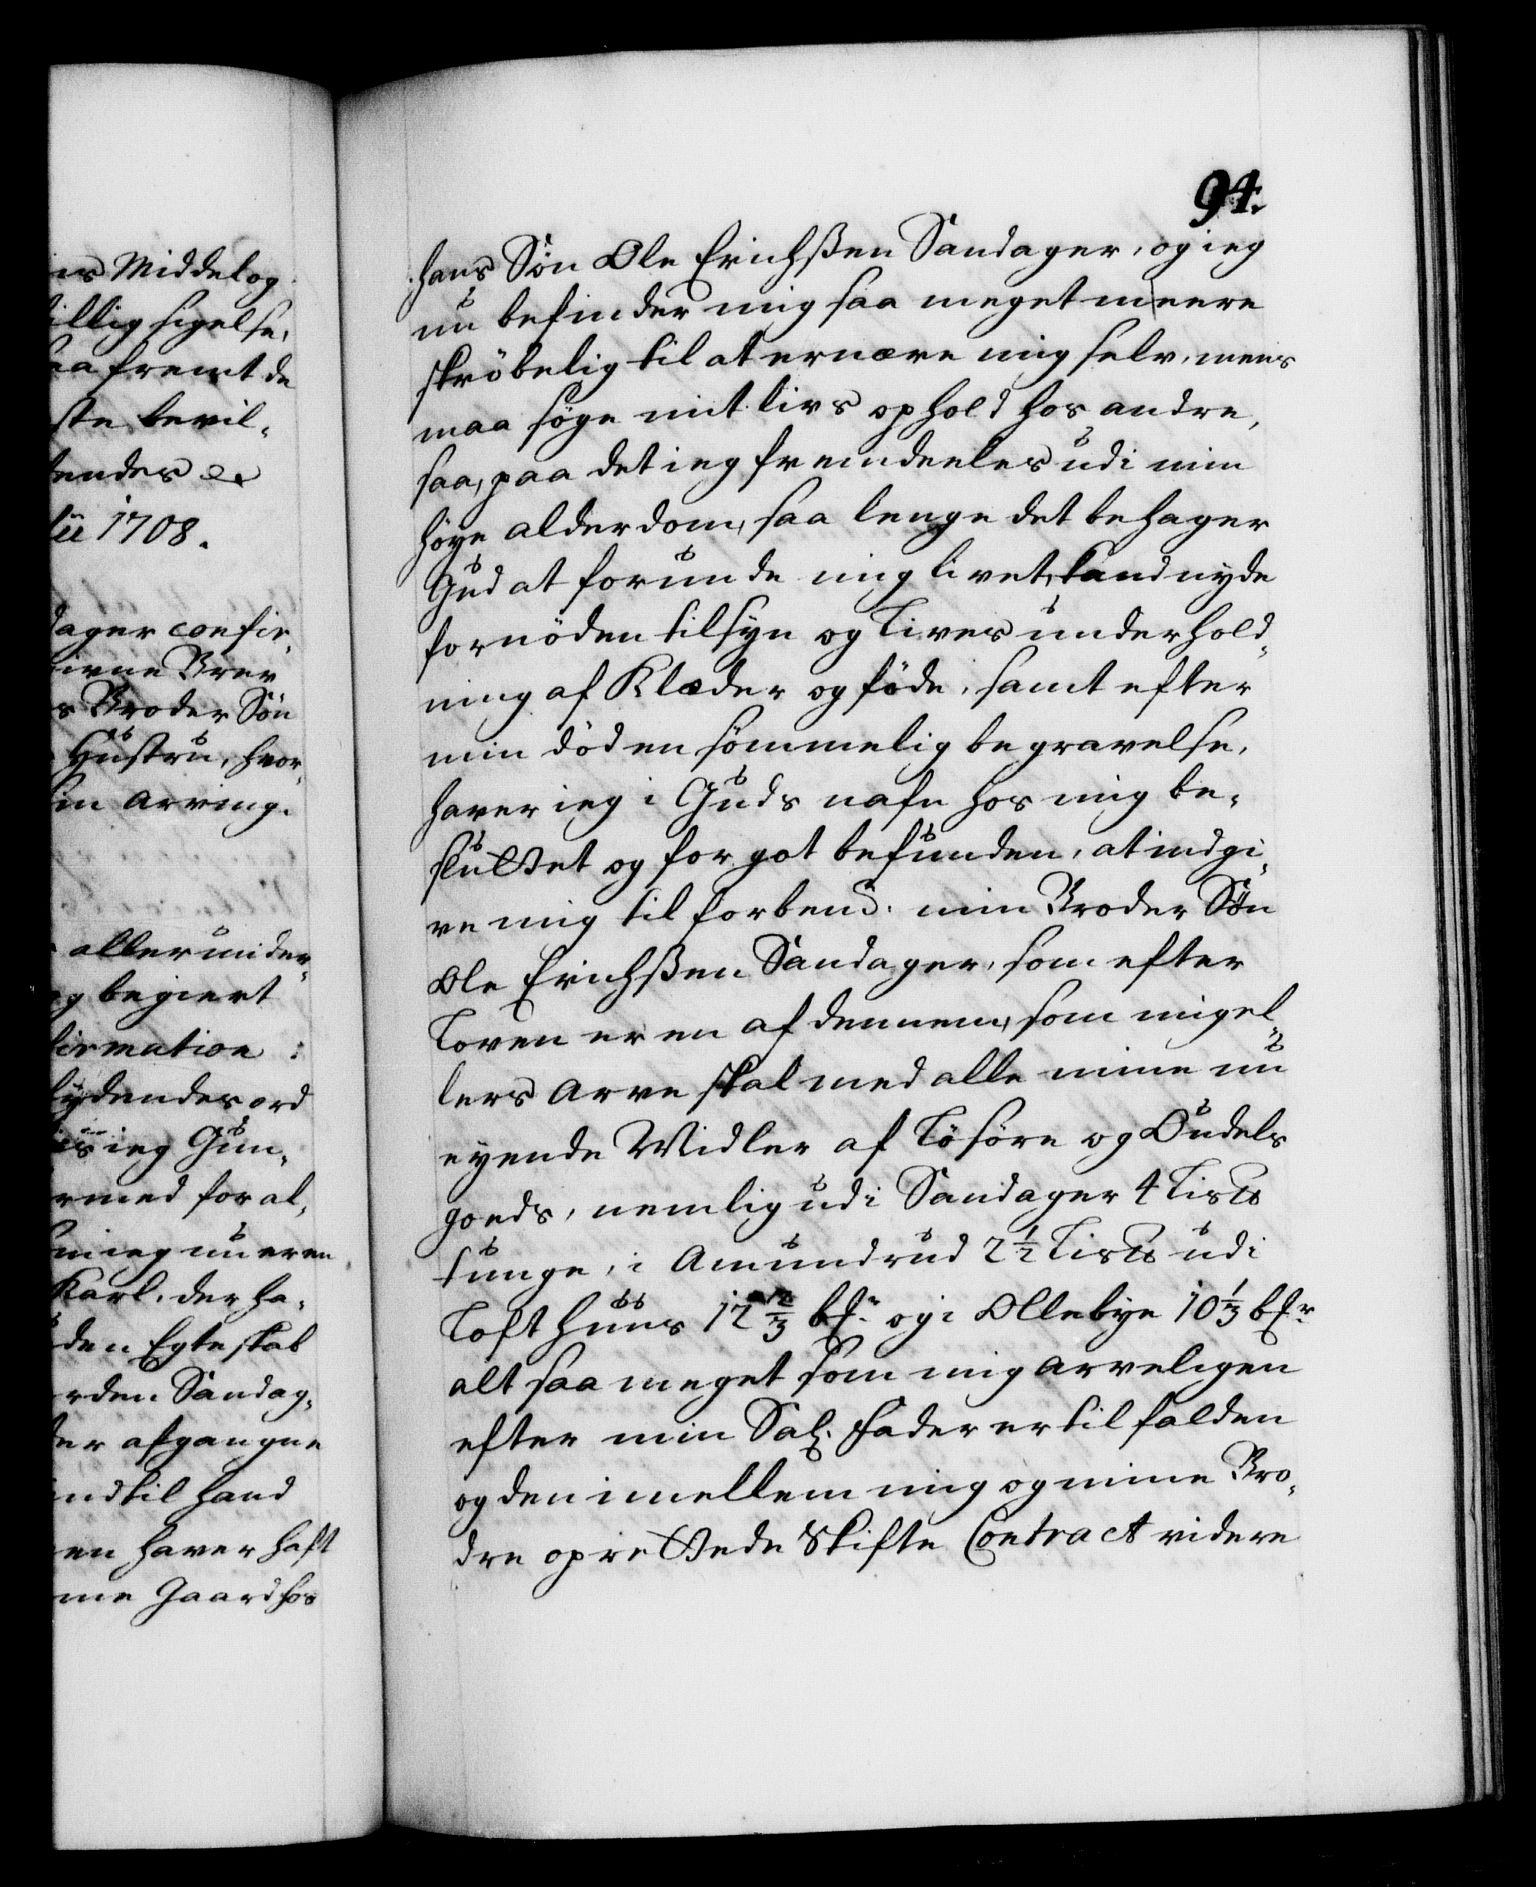 es Middel og
illig sigelse,
aa fremt de
ste bevil-
endes ex
lii 1708.
dager confir-
ivne Brev
s Broder Søn
Hustru, hvor-
in arving.
allerunder-
g begiert
firmation :
lydendes ord
is ieg Gun-
rmed for al-
m ieg nu er en
Karl, der ha-
den Egteskab
rden Sandag-
der afgangne
ind til hand
en haver haft
me Gaard hos
94.
hans Søn Ole Erichssen Sandager, og ieg
nu befinder mig saa meget meere
skröbelig til at ernære mig selv, mens
maa söge mit livs ophold hos andre,
saa, paa det ieg fremdeeles udi min
höye alderdom, saa lenge det behager
Gud at forunde mig livet, kand nyde
fornöden tilsyn og Lives underhold-
ning af Klæder og föde, samt efter
min död en sömmelig begravelse,
haver ieg i Guds nafn hos mig be-
sluttet og for got befunden, at indgi-
ve mig til forbend. min Broder Søn
Ole Erichssen Sandager, som efter
Loven er en af dennem, som mig el-
lers arve skal med alle mine nu
eyende Midler af Lösöre og Oudels
goeds, nemlig udi Sandager 4 Lis℔
tunge, i Amundrud 2½ Lis℔ udi
Lofthuus 12⅔ bsr. og i Ollebye 10⅓ bsr.
alt saa meget som mig arveligen
efter min Sal. Fader er til falden
og den imellem mig og mine Brö-
dre oprettede Skifte Contract videre